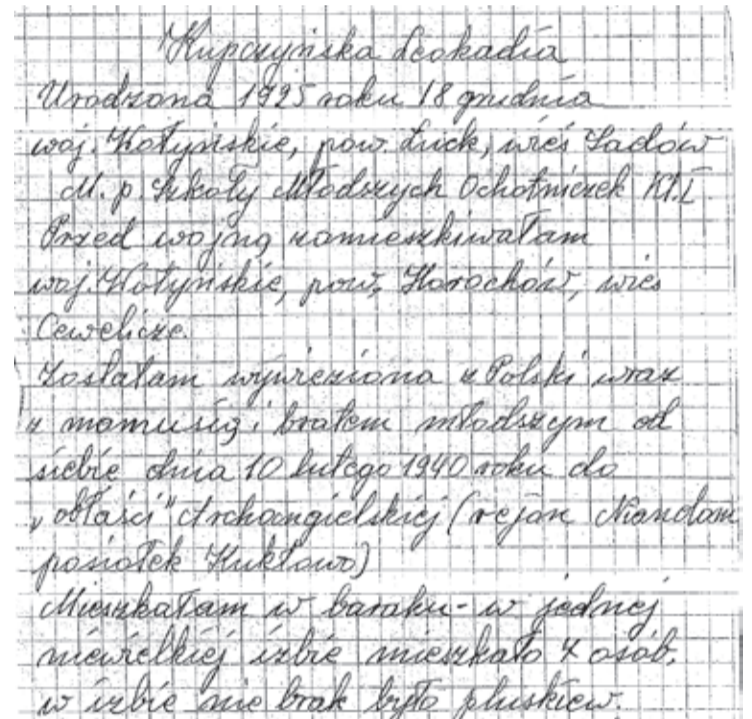 Kupczyńska Leokadia
Urodzona 1925 roku 18 grudnia
woj. Wołyńskie, pow. Łuck, wieś Sadów
M. p. Szkoły Młodszych Ochotniczek Kl. I
Przed wojną zamieszkiwałam
woj. Wołyńskie, pow. Horochów, wieś
Cewelicze.
Zostałam wywieziona z Polski wraz
z mamusią i bratem młodszym od
siebie dnia 10 lutego 1940 roku do
„obłaści" Archangielskiej (rejon Niandom
posiołek Kukłowo)
Mieszkałam w baraku - w jednej
niewielkiej izbie mieszkało 4 osób,
w izbie nie brak było pluskiew.